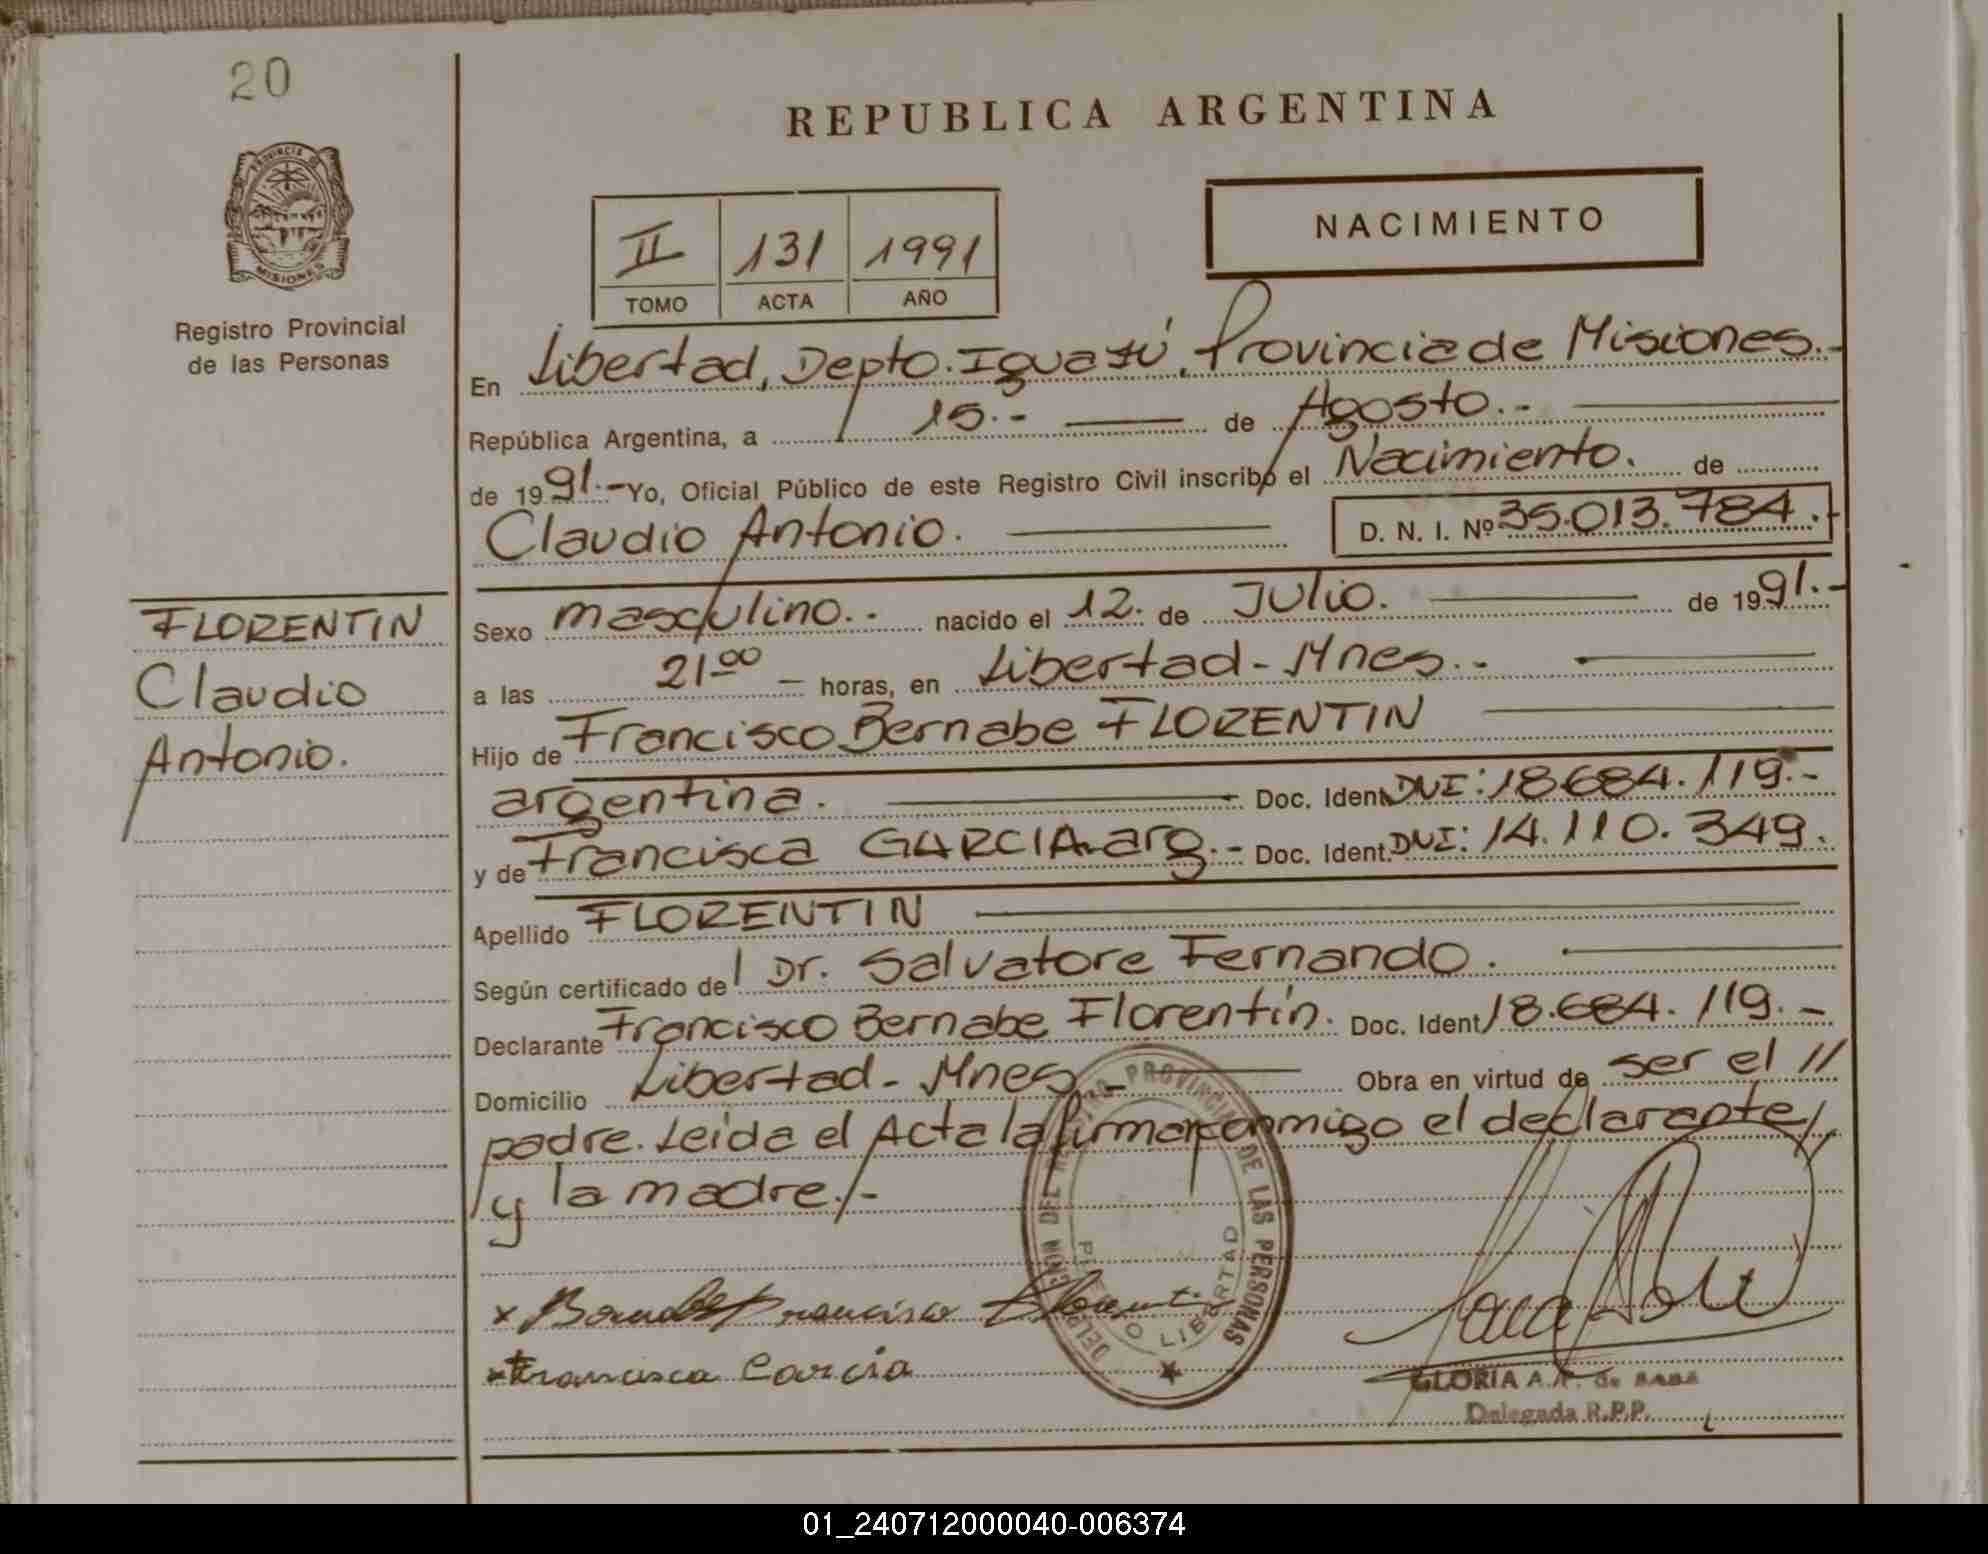 20
REPUBLICA ARGENTINA
PROVINCIA DE
MISIONES
Registro Provincial
de las Personas
II 131 1991
TOMO ACTA AÑO
NACIMIENTO
En Libertad, Depto. Iguazú, Provincia de Misiones.-
República Argentina, a 15.- de Agosto.-
de 1991.- Yo, Oficial Público de este Registro Civil inscribo el Nacimiento. de
Claudio Antonio. D. N. I. Nº 35.013.784.-
FLORENTIN
Claudio
Antonio.
Sexo masculino.- nacido el 12. de Julio. de 1991.-
a las 21⁰⁰ - horas, en Libertad - Mnes.-
Hijo de Francisco Bernabe FLORENTIN
argentina. Doc. Ident. DNI: 18.684.119.-
y de Francisca GARCIA-arg.- Doc. Ident. DNI: 14.110.349.
Apellido FLORENTIN
Según certificado de Dr. Salvatore Fernando.
Declarante Francisco Bernabe Florentín. Doc. Ident. 18.684.119.-
Domicilio Libertad - Mnes - Obra en virtud de ser el //
padre. Leída el Acta la firman conmigo el declarante/
/y la madre./-
x Bernabe Francisco Florentin
x Francisca Garcia
PROVINCIAL DE LAS PERSONAS
LIBERTAD
GLORIA A. de
Delegada R.P.P.
01_240712000040-006374